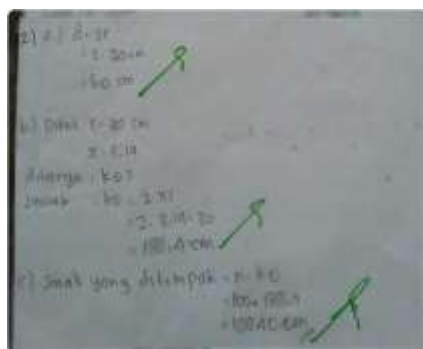 2) a.) d = 2r
= 2. 30 cm
= 60 cm
b.) Diket r = 30 cm
π = 3,14
ditanya : k⊙?
jawab : k⊙ = 2 πr
= 2. 3,14. 30
= 188,4 cm
c) Jarak yang ditempuh = n. k⊙
= 100 x 188,4
= 18840 cm